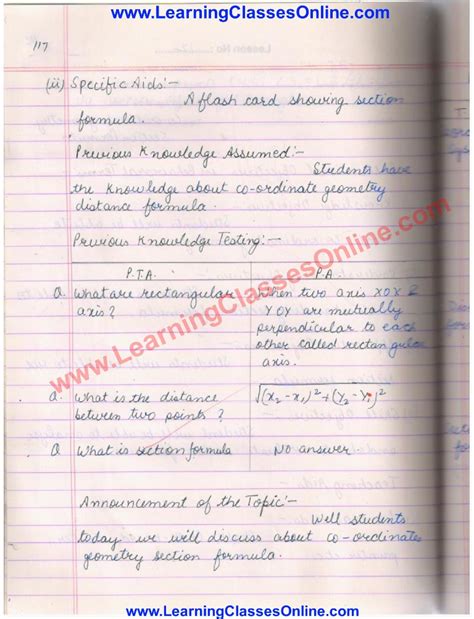 www.LearningClassesOnline.com
117
(ii) Specific Aids:-
A flash card showing section
formula.
Previous Knowledge Assumed:-
Students have
the knowledge about co-ordinate geometry
distance formula.
Previous Knowledge Testing:-
P.T.A. P.A.
Q. What are rectangular axis? When two axis XOX & YOY are mutually perpendicular to each other called rectangular axis.
Q. What is the distance between two points? √(x₂-x₁)²+(y₂-y₁)²
Q What is section formula No answer
Announcement of the Topic:-
Well students
today we will discuss about co-ordinate
geometry section formula.
www.LearningClassesOnline.com
www.LearningClassesOnline.com